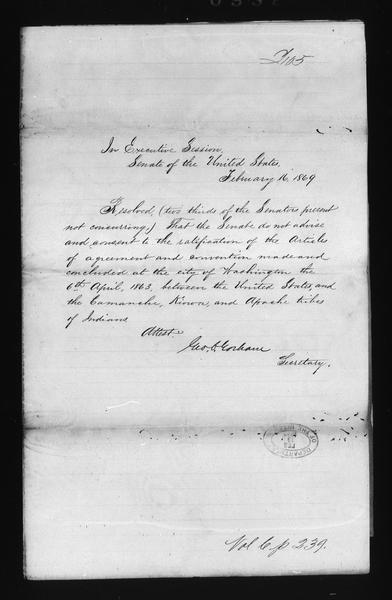 In Executive Session,
Senate of the United States,
February 16, 1869
Resolved, (two thirds of the Senators present
not concurring,) That the Senate do not advise
and consent to the ratification of the Articles
of agreement and convention made and
concluded at the city of Washington the
6th April, 1863, between the United States, and
the Camanche, Kiowa, and Apache tribes
of Indians
Attest:
Geo. C. Gorham
Secretary.
Vol 6 p 239.